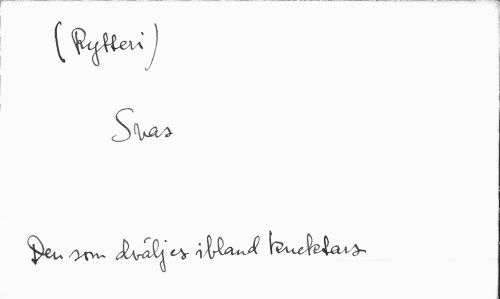 (Rytteri)
Svas
Den som dväljes ibland knektars